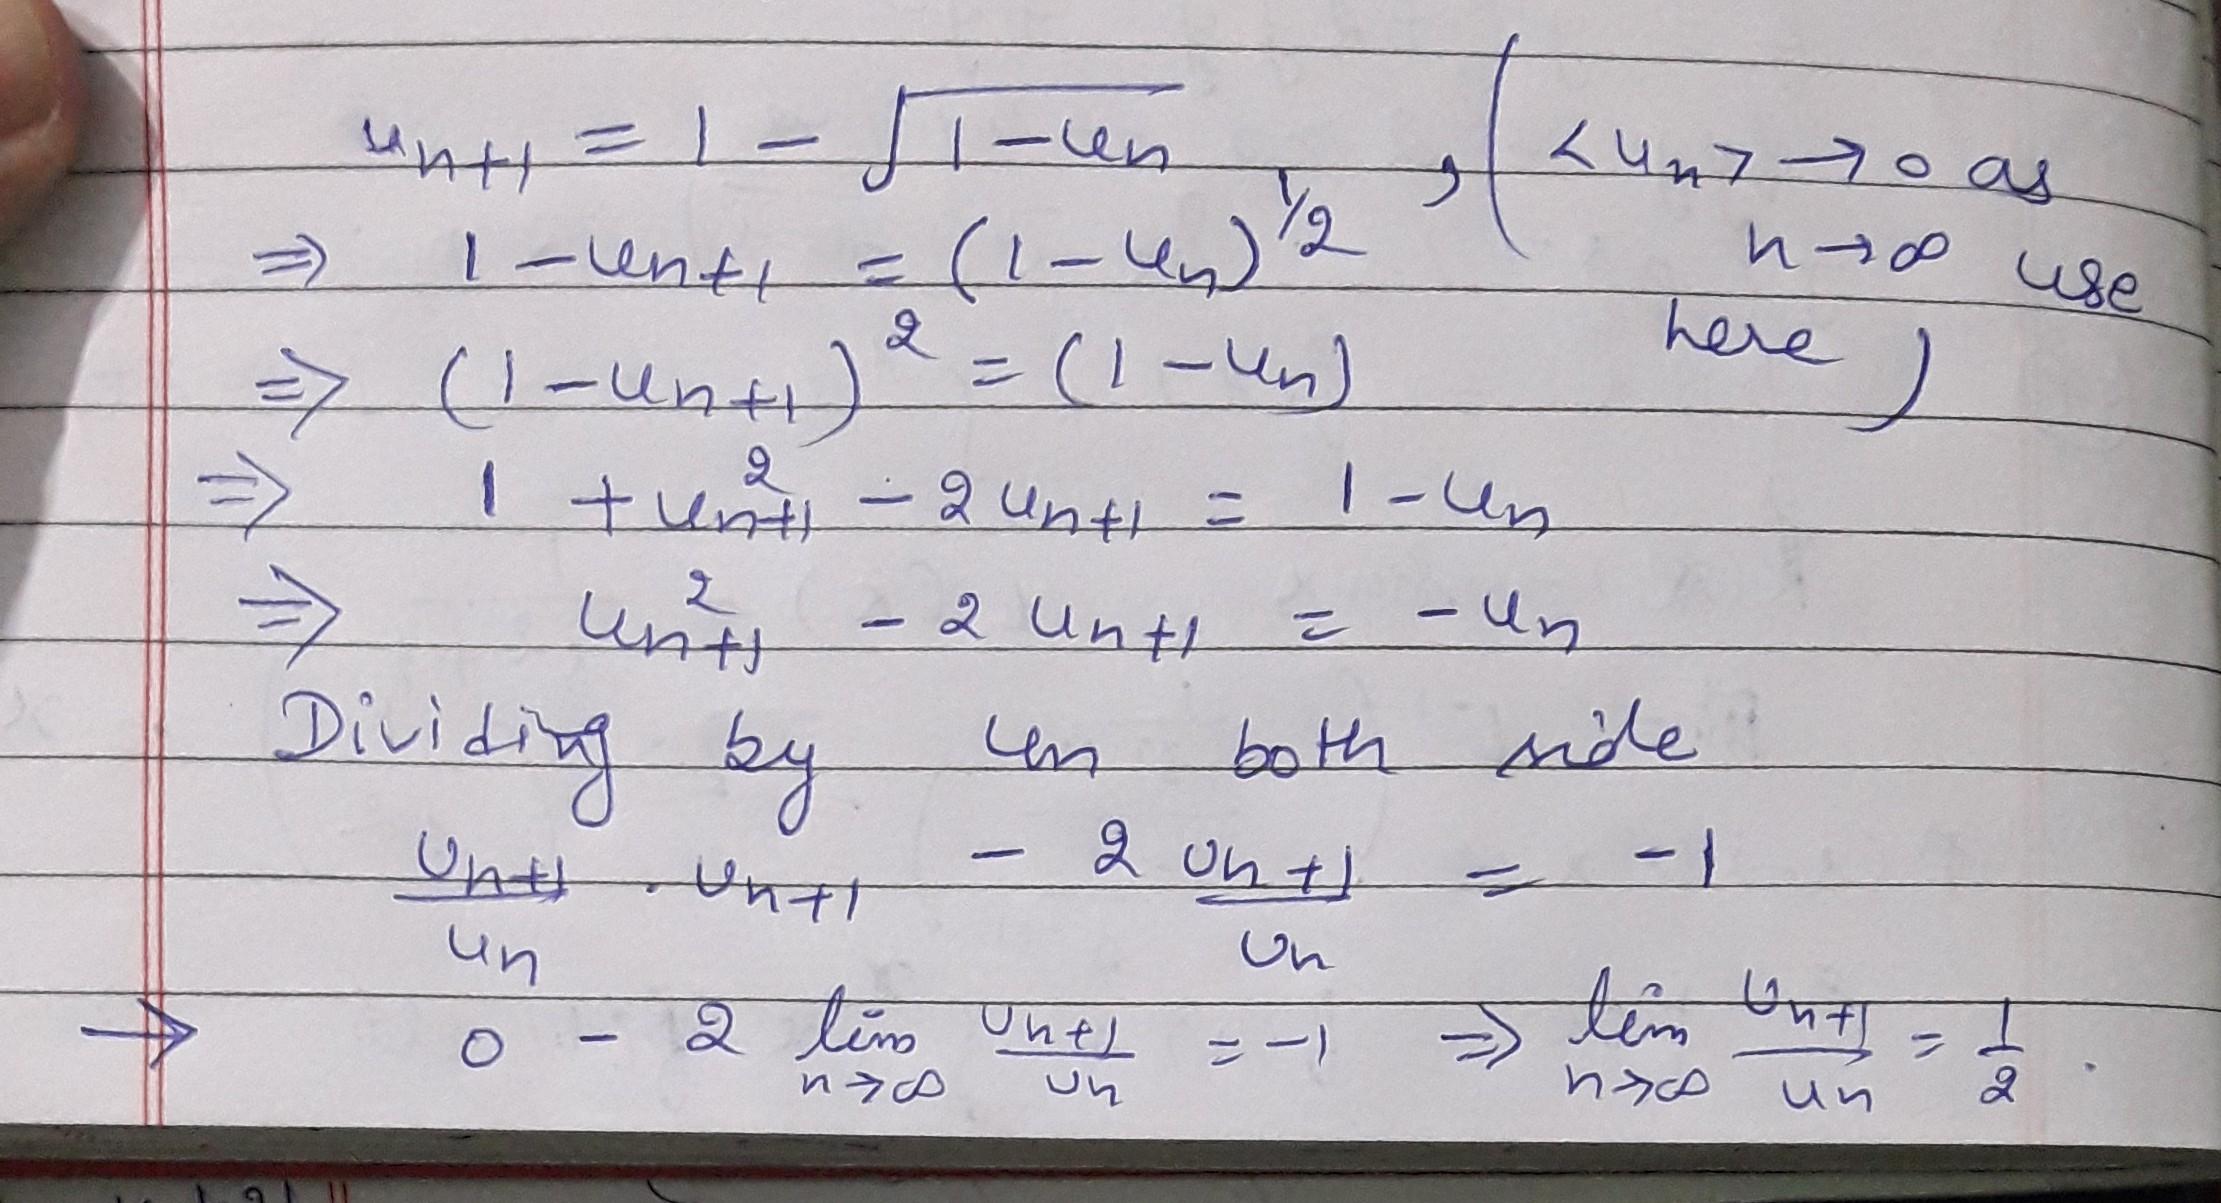 u_{n+1} = 1 - √(1-u_n) , ( <u_n> → 0 as
⇒ 1 - u_{n+1} = (1-u_n)^{1/2} n→∞ use
⇒ (1-u_{n+1})^2 = (1-u_n) here )
⇒ 1 + u_{n+1}^2 - 2u_{n+1} = 1-u_n
⇒ u_{n+1}^2 - 2u_{n+1} = -u_n
Dividing by u_n both side
u_{n+1}/u_n . u_{n+1} - 2 u_{n+1}/u_n = -1
→ 0 - 2 lim_{n→∞} u_{n+1}/u_n = -1 ⇒ lim_{n→∞} u_{n+1}/u_n = 1/2 .